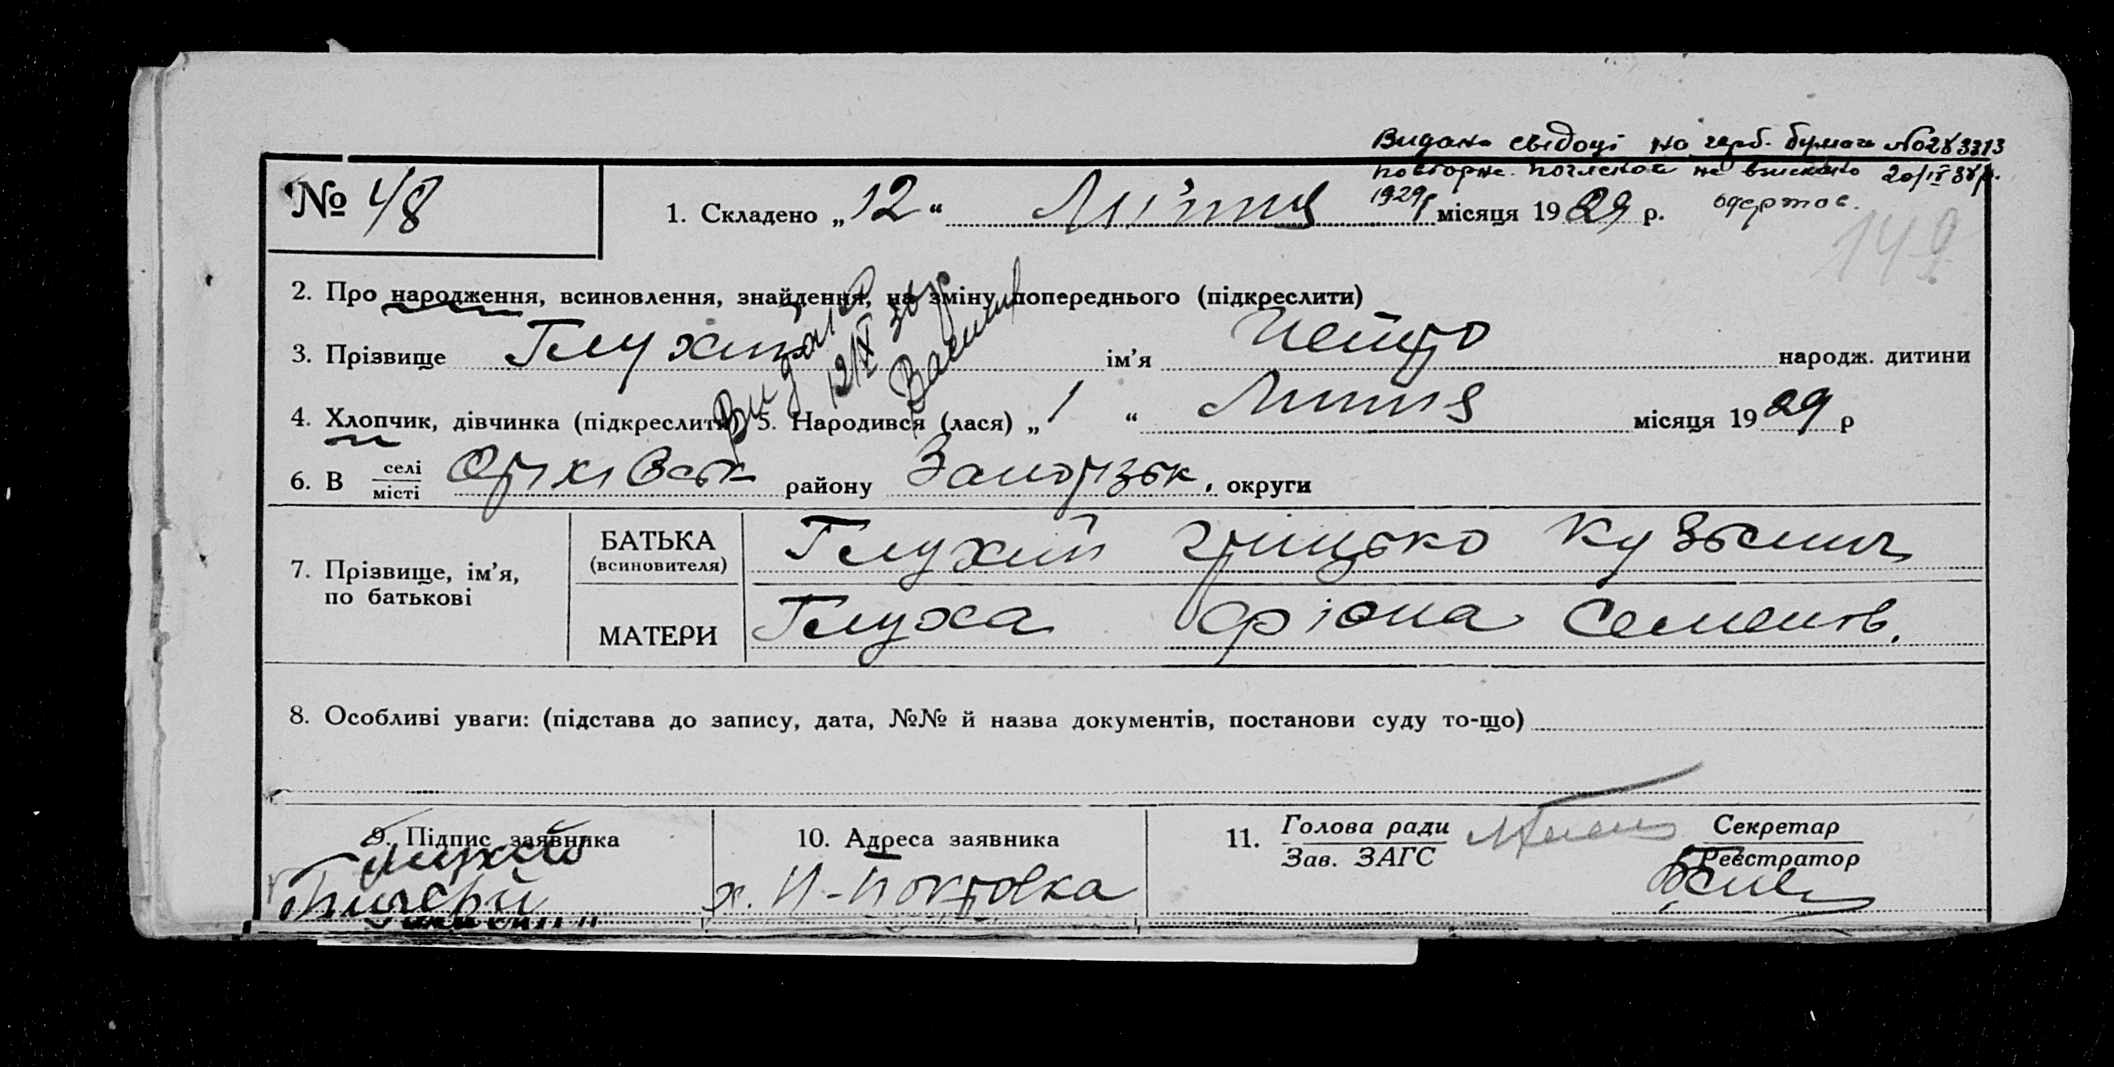 Видано свідоці на герб. бумаге №0283313
повторне. не взискано 20/IV 38р.
1929р одержав.
149
№ 48
1. Складено „12“ Липня місяця 1929 р.
2. Про народження, всиновлення, знайдення, на зміну попереднього (підкреслити)
3. Прізвище Глухий ім’я Петро народж. дитини
Видано
12/X 36р
4. Хлопчик, дівчинка (підкреслити) 5. Народився (лася) „1“ Липня місяця 1929 р
6. В селі
місті Оріхівськ району Запорізьк. округи
7. Прізвище, ім’я, по батькові
БАТЬКА (всиновителя) Глухий Грицько Кузьмич
МАТЕРИ Глуха Фіона Семенов.
8. Особливі уваги: (підстава до запису, дата, №№ й назва документів, постанови суду то-що)
9. Підпис заявника
Глухий
10. Адреса заявника
х. Н-Покровка
11. Голова ради
Зав. ЗАГС
Секретар
Реєстратор